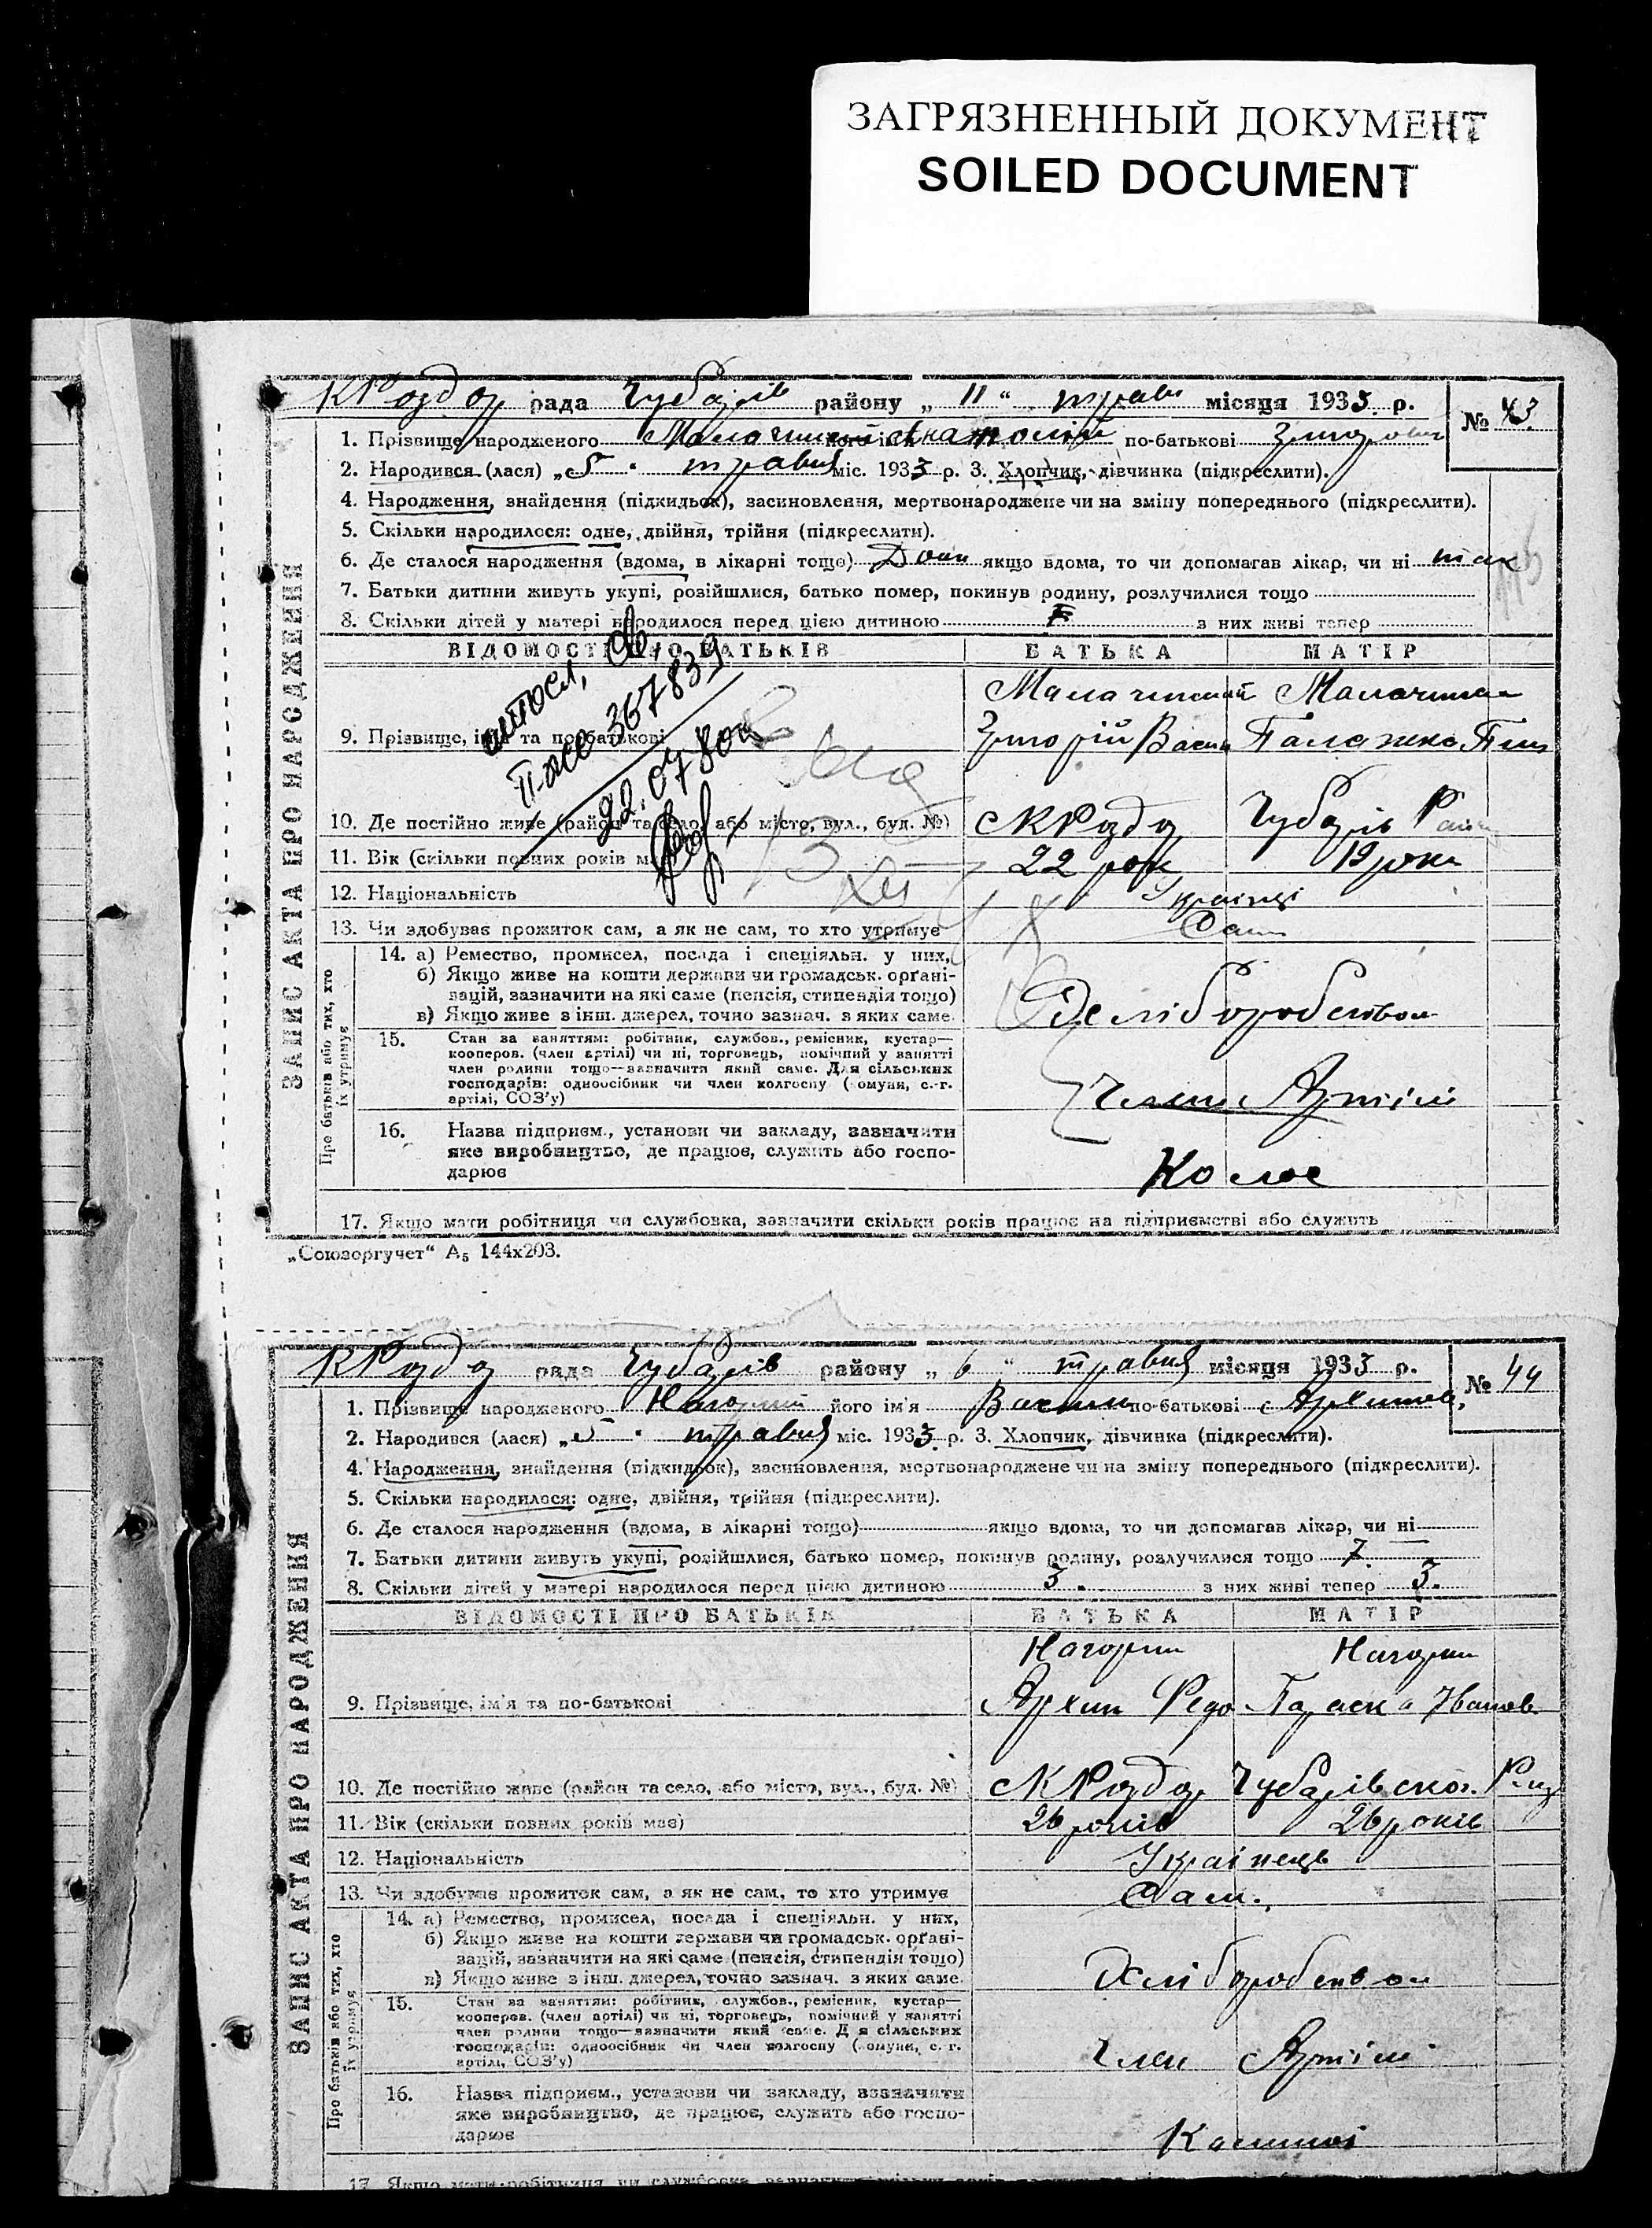 ЗАГРЯЗНЕННЫЙ ДОКУМЕНТ
SOILED DOCUMENT
КРозд рада Чубарів району „ 11 “ трав місяця 1933 р. № 43
1. Прізвище народженого його ім'я Анатолій по-батькові
2. Народився (лася) „ 5 “ травня міс. 1933 р. 3. Хлопчик, дівчинка (підкреслити).
4. Народження, знайдення (підкидьок), засиновлення, мертвонароджене чи на зміну попереднього (підкреслити).
5. Скільки народилося: одне, двійня, трійня (підкреслити).
6. Де сталося народження (вдома, в лікарні тощо) якщо вдома, то чи допомагав лікар, чи ні так
7. Батьки дитини живуть укупі, розійшлися, батько помер, покинув родину, розлучилися тощо
8. Скільки дітей у матері народилося перед цією дитиною з них живі тепер
ЗАПИС АКТА ПРО НАРОДЖЕННЯ
ВІДОМОСТІ ПРО БАТЬКІВ БАТЬКА МАТІР
9. Прізвище, ім'я та по-батькові Григорій Васи
367839
22.07.80
10. Де постійно живе (район та село, або місто, вул., буд. №)
11. Вік (скільки повних років має) 22 рок 19 роки
12. Національність Українці
13. Чи здобуває прожиток сам, а як не сам, то хто утримує Сам
Про батьків або тих, хто їх утримує
14. а) Ремество, промисел, посада і спеціяльн. у них,
б) Якщо живе на кошти держави чи громадськ. орґані-
зацій, зазначити на які саме (пенсія, стипендія тощо)
в) Якщо живе з інш. джерел, точно зазнач. з яких саме.
Хліборобством
15. Стан за заняттям: робітник, службов., ремісник, кустар—
кооперов. (член артілі) чи ні, торговець, помічний у занятті
член родини тощо—зазначити який саме. Для сільських
господарів: одноосібник чи член колгоспу (комуни, с.-г.
артілі, СОЗ'у)
Член Артілі
16. Назва підприєм., установи чи закладу, зазначити
яке виробництво, де працює, служить або госпо-
дарює
Колос
17. Якщо мати робітниця чи службовка, зазначити скільки років працює на підприємстві або служить
„Союзоргучет“ А₅ 144х203.
КРозд рада Чубарів району „ 6 “ травня місяця 1933 р. № 44
1. Прізвище народженого його ім'я Василь по-батькові Архипов,
2. Народився (лася) „ 5 “ травня міс. 1933 р. 3. Хлопчик, дівчинка (підкреслити).
4. Народження, знайдення (підкидьок), засиновлення, мертвонароджене чи на зміну попереднього (підкреслити).
5. Скільки народилося: одне, двійня, трійня (підкреслити).
6. Де сталося народження (вдома, в лікарні тощо) якщо вдома, то чи допомагав лікар, чи ні
7. Батьки дитини живуть укупі, розійшлися, батько помер, покинув родину, розлучилися тощо 7.
8. Скільки дітей у матері народилося перед цією дитиною 3. з них живі тепер 3.
ЗАПИС АКТА ПРО НАРОДЖЕННЯ
ВІДОМОСТІ ПРО БАТЬКІВ БАТЬКА МАТІР
9. Прізвище, ім'я та по-батькові Архип Федо Параска Іванов
10. Де постійно живе (район та село, або місто, вул., буд. №) Чубарівског.
11. Вік (скільки повних років має) 26 років 26 років
12. Національність Українець
13. Чи здобуває прожиток сам, а як не сам, то хто утримує Сам.
Про батьків або тих, хто їх утримує
14. а) Ремество, промисел, посада і спеціяльн. у них,
б) Якщо живе на кошти держави чи громадськ. орґані-
зацій, зазначити на які саме (пенсія, стипендія тощо)
в) Якщо живе з інш. джерел, точно зазнач. з яких саме.
Хліборобством
15. Стан за заняттям: робітник, службов., ремісник, кустар—
кооперов. (член артілі) чи ні, торговець, помічний у занятті
член родини тощо—зазначити який саме. Для сільських
господарів: одноосібник чи член колгоспу (комуни, с.-г.
артілі, СОЗ'у)
Член Артілі
16. Назва підприєм., установи чи закладу, зазначити
яке виробництво, де працює, служить або госпо-
дарює
17. Якщо мати робітниця чи службовка